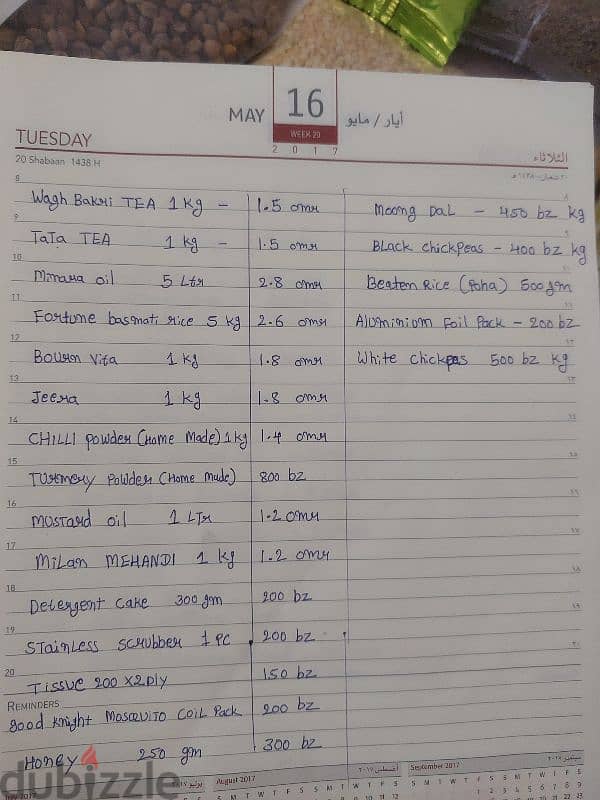 MAY 16 أيار / مايو
WEEK 20
2 0 1 7
TUESDAY الثلاثاء
20 Shabaan 1438 H
8
Wagh Bakri TEA 1 Kg - 1.5 omr
Moong Dal - 450 bz kg
9
TaTa TEA 1 kg - 1.5 omr
Black chickpeas - 400 bz kg
10
Minara oil 5 Ltr 2.8 omr
Beaten Rice (Poha) 500 gm
11
Fortune basmati rice 5 kg 2.6 omr
Aluminiom Foil Pack - 200 bz
12
Bourn Vita 1 kg 1.8 omr
White chickpeas 500 bz kg
13
Jeera 1 kg 1.8 omr
14
CHILLI powder (Home Made) 1 kg 1.4 omr
15
TURMERY Powder (Home Made) 800 bz
16
Mustard oil 1 LTr 1.2 omr
17
Milan MEHANDI 1 kg 1.2 omr
18
Detergent Cake 300 gm 200 bz
19
STainLess scrubber 1 PC 200 bz
20
Tissue 200 x2 ply 150 bz
REMINDERS
good Knight Mosquito Coil Pack 200 bz
Honey 250 gm 300 bz
August 2017 أغسطس ٢٠١٧
September 2017
dubizzle